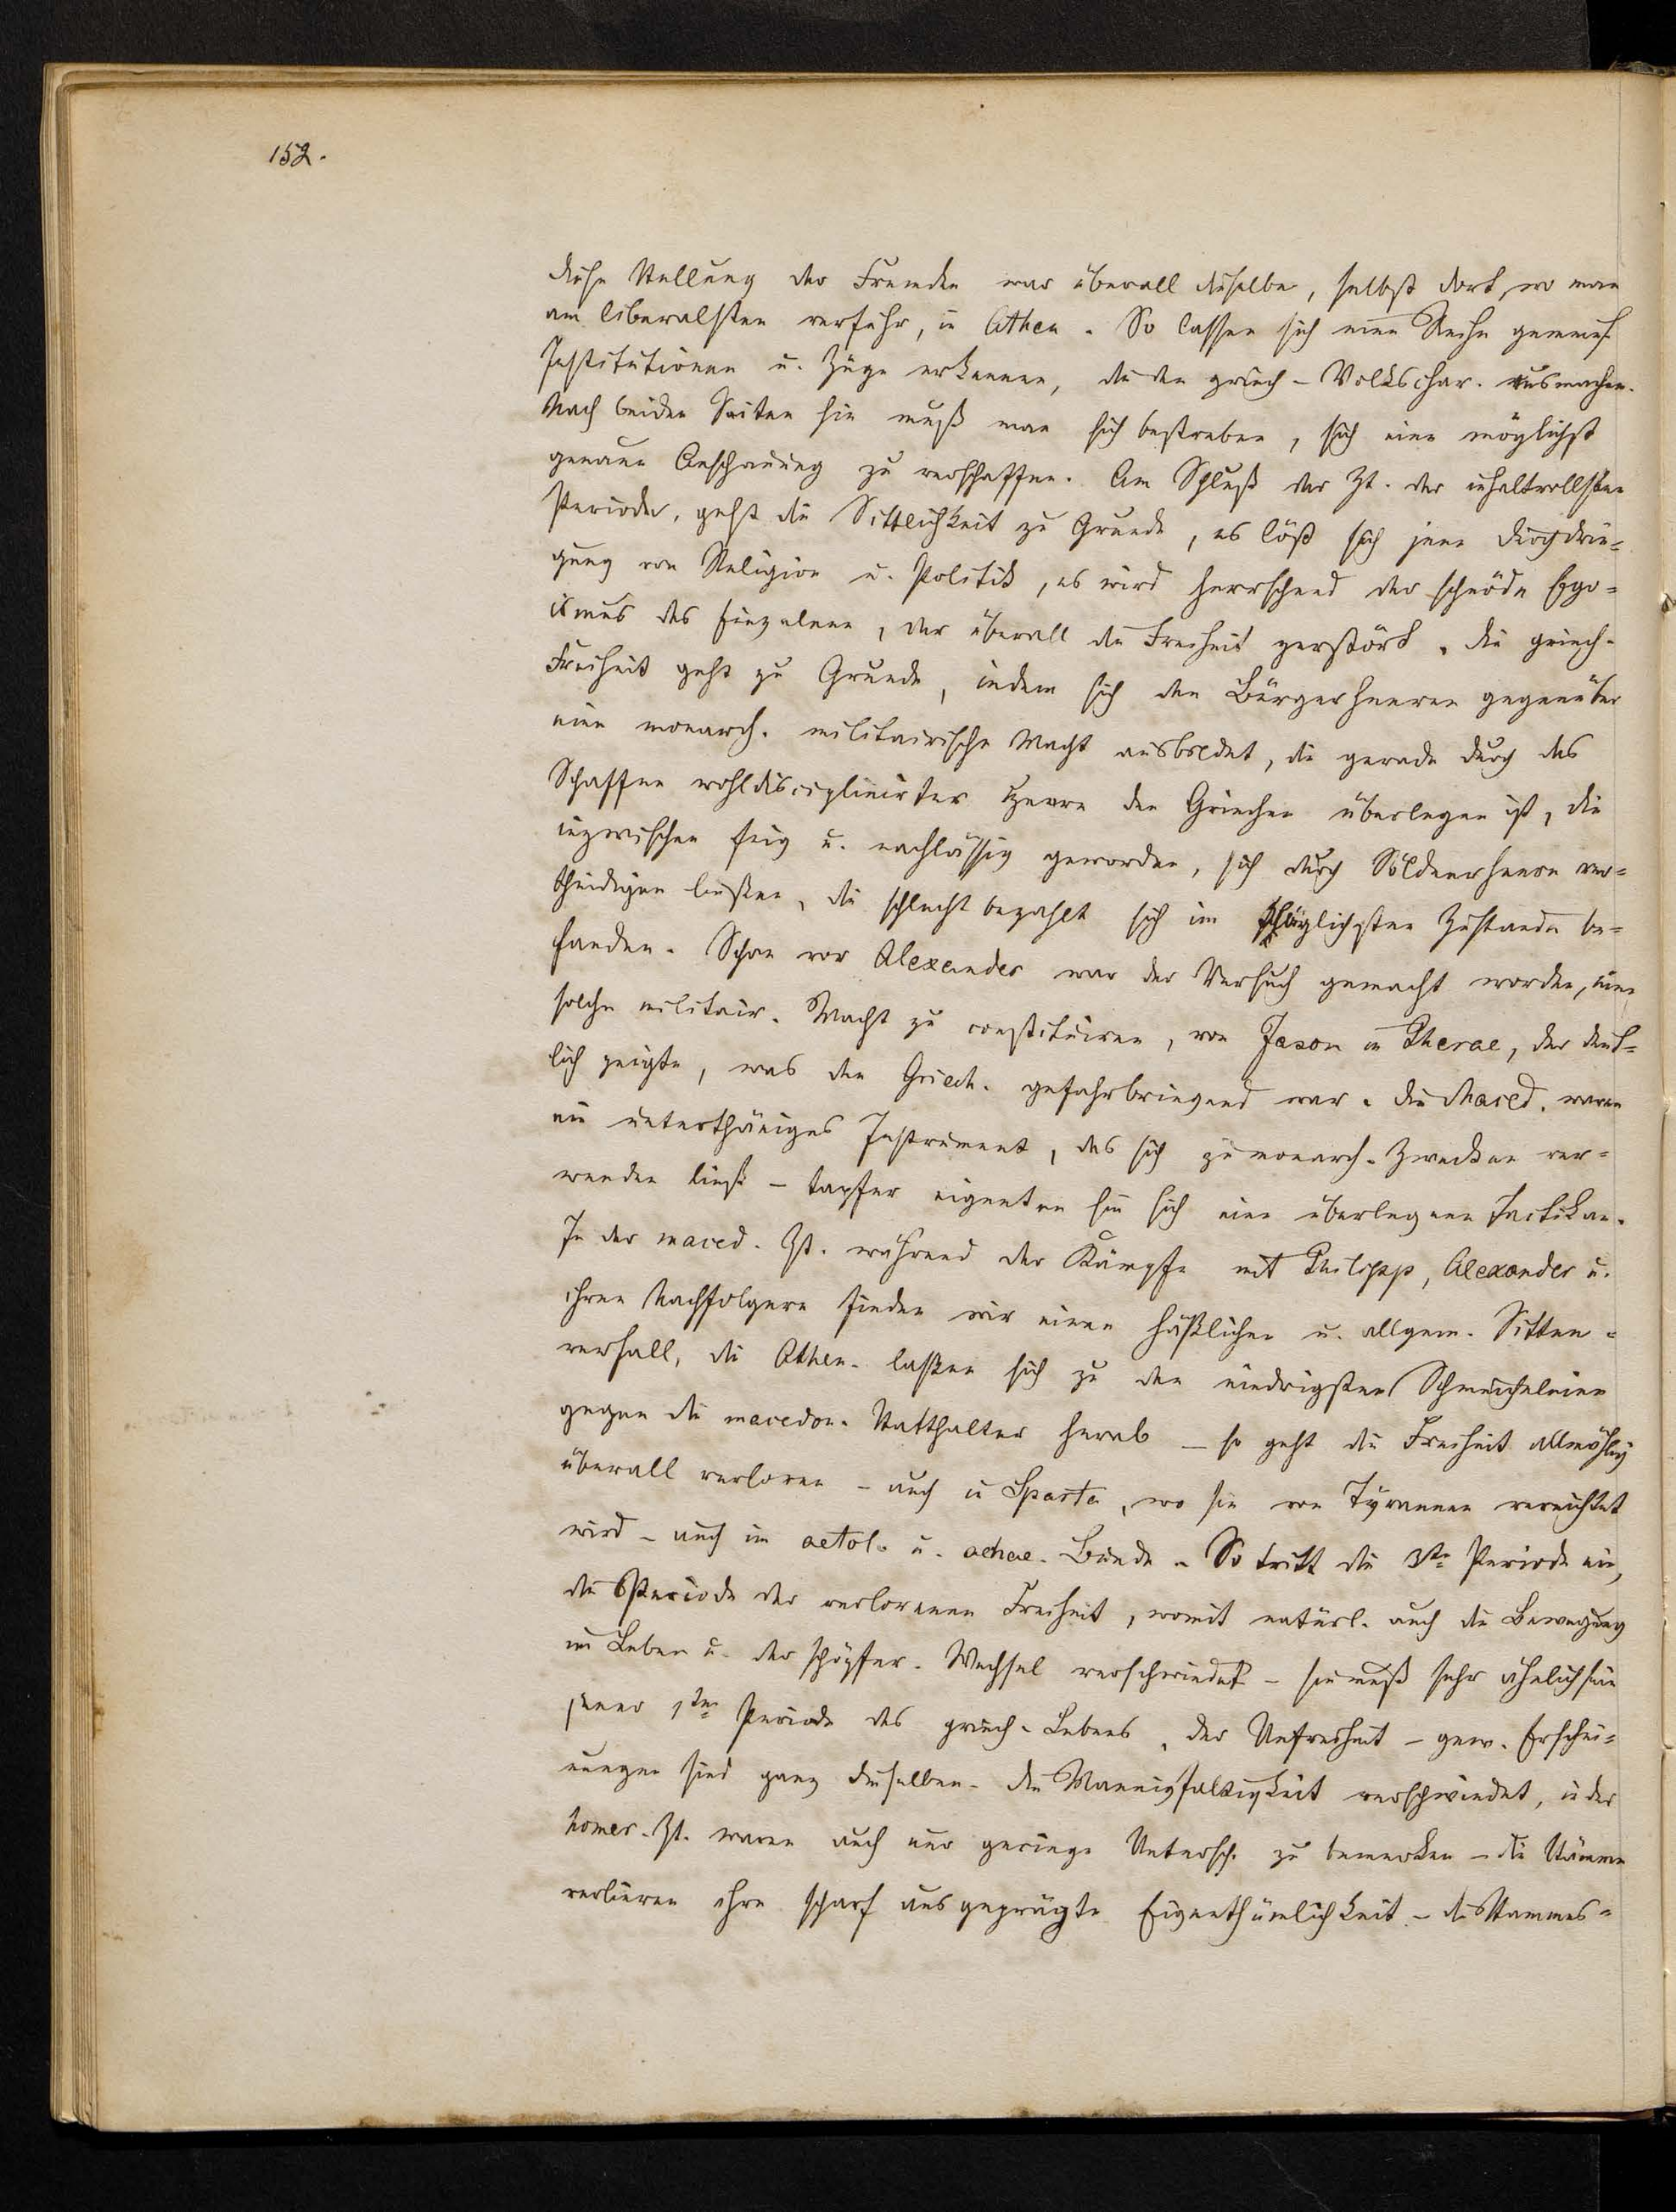 152.
diese Stellung der Fremden war überall dieselbe, selbst dort, wo man
am liberalsten verfuhr, in Athen. So lassen sich eine Reihe gemeins.
Institutionen u. Züge erkennen, die den griech. Volkschar. ausmachen.
Nach beiden Seiten hin muß man sich bestreben, sich eine möglichst
genaue Anschauung zu verschaffen. Am Schluß der Zt. der inhaltvollsten
Periode, geht die Sittlichkeit zu Grunde, es löst sich jene Durchdrin=
gung von Religion u. Politik, es wird herrschend der schnöde Ego=
ismus des Einzelnen, der überall die Freiheit zerstört. Die griech.
Freiheit geht zu Grunde, indem sich den Bürgerheeren gegenüber
eine monarch. militairische Macht ausbildet, die gerade durch das
Schaffen wohldisciplinirter Heere den Griechen überlegen ist, die
inzwischen feig u. nachlässig geworden, sich durch Söldnerheere ver=
theidigen ließen, die schlecht bezahlt sich im kläglichsten Zustande be=
fanden. Schon vor Alexander war der Versuch gemacht worden, eine
solche militair. Macht zu constituiren, von Jason in Pherae, der deut=
lich zeigte, was den Griech. gefahrbringend war. Die Maced. waren
ein unterthäniges Instrument, das sich zu monarch. Zwecken ver=
wenden ließ – tapfer eigneten sie sich eine überlegene Tactik an.
In der maced. Zt. während der Kämpfe mit Philipp, Alexander u.
ihren Nachfolgern finden wir einen häßlichen u. allgem. Sitten=
verfall, die Athen. lassen sich zu den niedrigsten Schmeicheleien
gegen die macedon. Statthalter herab – so geht die Freiheit allmählig
überall verloren – auch in Sparta, wo sie von Tyrannen vernichtet
wird – auch im aetol. u. achae. Bunde. So tritt die 3te Periode ein,
die Periode der verlorenen Freiheit, womit natürl. auch die Bewegung
im Leben u. der schöpfer. Wechsel verschwindet – sie muß sehr ähnlich sein
jener 1ten Periode des griech. Lebens, der Unfreiheit – gew. Erschei=
nungen sind ganz dieselben. Die Mannigfaltigkeit verschwindet, in der
homer. Zt. waren auch nur geringe Untersch. zu bemerken – die Stämme
verlieren ihre scharf ausgeprägte Eigenthümlichkeit – die Stammes=